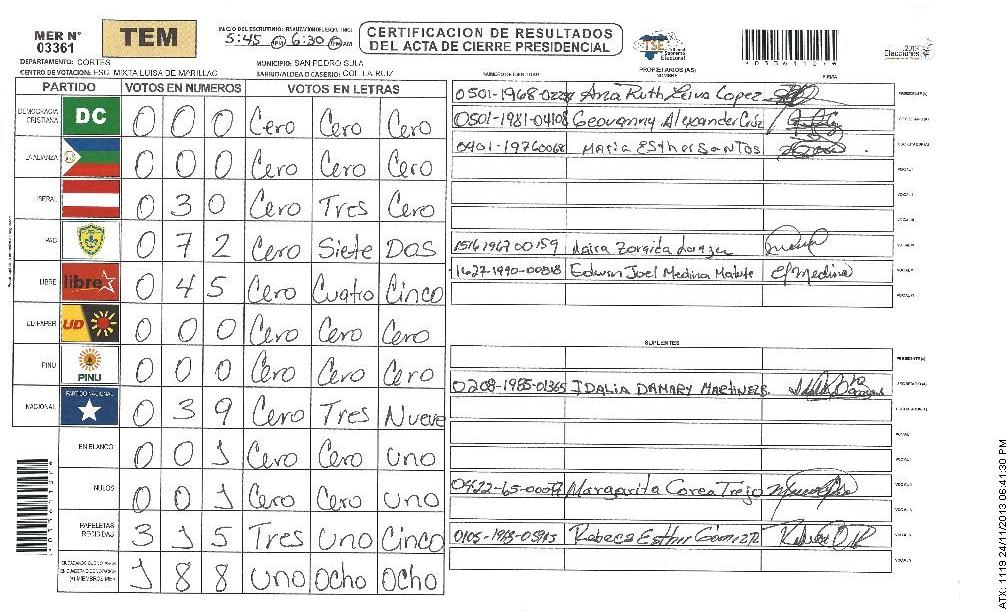 MER N° 03361
TEM
INICIO DEL ESCRUTINIO: FINALIZACION DEL ESCRUTINIO:
5:45 PM 6:30 PM AM
CERTIFICACION DE RESULTADOS
DEL ACTA DE CIERRE PRESIDENCIAL
TSE Tribunal Supremo Electoral
2013
Elecciones
DEPARTAMENTO: CORTES
MUNICIPIO: SAN PEDRO SULA
CENTRO DE VOTACION: ESC. MIXTA LUISA DE MARILLAC
BARRIO/ALDEA O CASERIO: COL. LA RUIZ
PARTIDO VOTOS EN NUMEROS VOTOS EN LETRAS
DEMOCRACIA CRISTIANA DC 0 0 0 Cero Cero Cero
LA ALIANZA 0 0 0 Cero Cero Cero
LIBERAL 0 3 0 Cero Tres Cero
PAC 0 7 2 Cero Siete Dos
LIBRE libre 0 4 5 Cero Cuatro Cinco
UD-FAPER UD 0 0 0 Cero Cero Cero
PINU PINU 0 0 0 Cero Cero Cero
NACIONAL PARTIDO NACIONAL 0 3 9 Cero Tres Nueve
EN BLANCO 0 0 1 Cero Cero uno
NULOS 0 0 1 Cero Cero uno
PAPELETAS RECIBIDAS 3 1 5 Tres uno Cinco
1 8 8 uno ocho ocho
NUMERO DE IDENTIDAD PROPIETARIOS (AS) NOMBRE FIRMA
Ana Ruth Leiva Lopez PRESIDENTE (A)
0501-1981-04108 Geovanny Alexander SECRETARIO (A)
0401-19760068 Maria Esther Santos ESCRUTADOR (A)
VOCAL I
VOCAL II
VOCAL III
1516196700159 VOCAL IV
1627-1990-00518 Edwin Joel Medina Matute EJMedina VOCAL V
VOCAL VI
SUPLENTES
PRESIDENTE (A)
0208-1985-01365 IDALIA DAMARY MARTINEZ SECRETARIO (A)
ESCRUTADOR (A)
VOCAL I
VOCAL II
Margarita Corea Trejo VOCAL III
VOCAL IV
Rebeca Esther Gomez VOCAL V
VOCAL VI
ATX: 1119 24/11/2013 06:41:30 PM